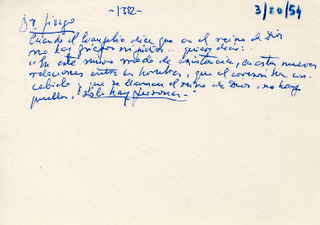 -1382-
3/20/54
Dr. Jivago
Cuando el Evangelio dice que en el reino de Dios
no hay griegos ni judíos... quiere decir:
"En este nuevo modo de existencia, en estas nuevas
relaciones entre los hombres, que el corazón ha con-
cebido y que se llaman el reino de Dios, no hay
pueblos, sólo hay personas"